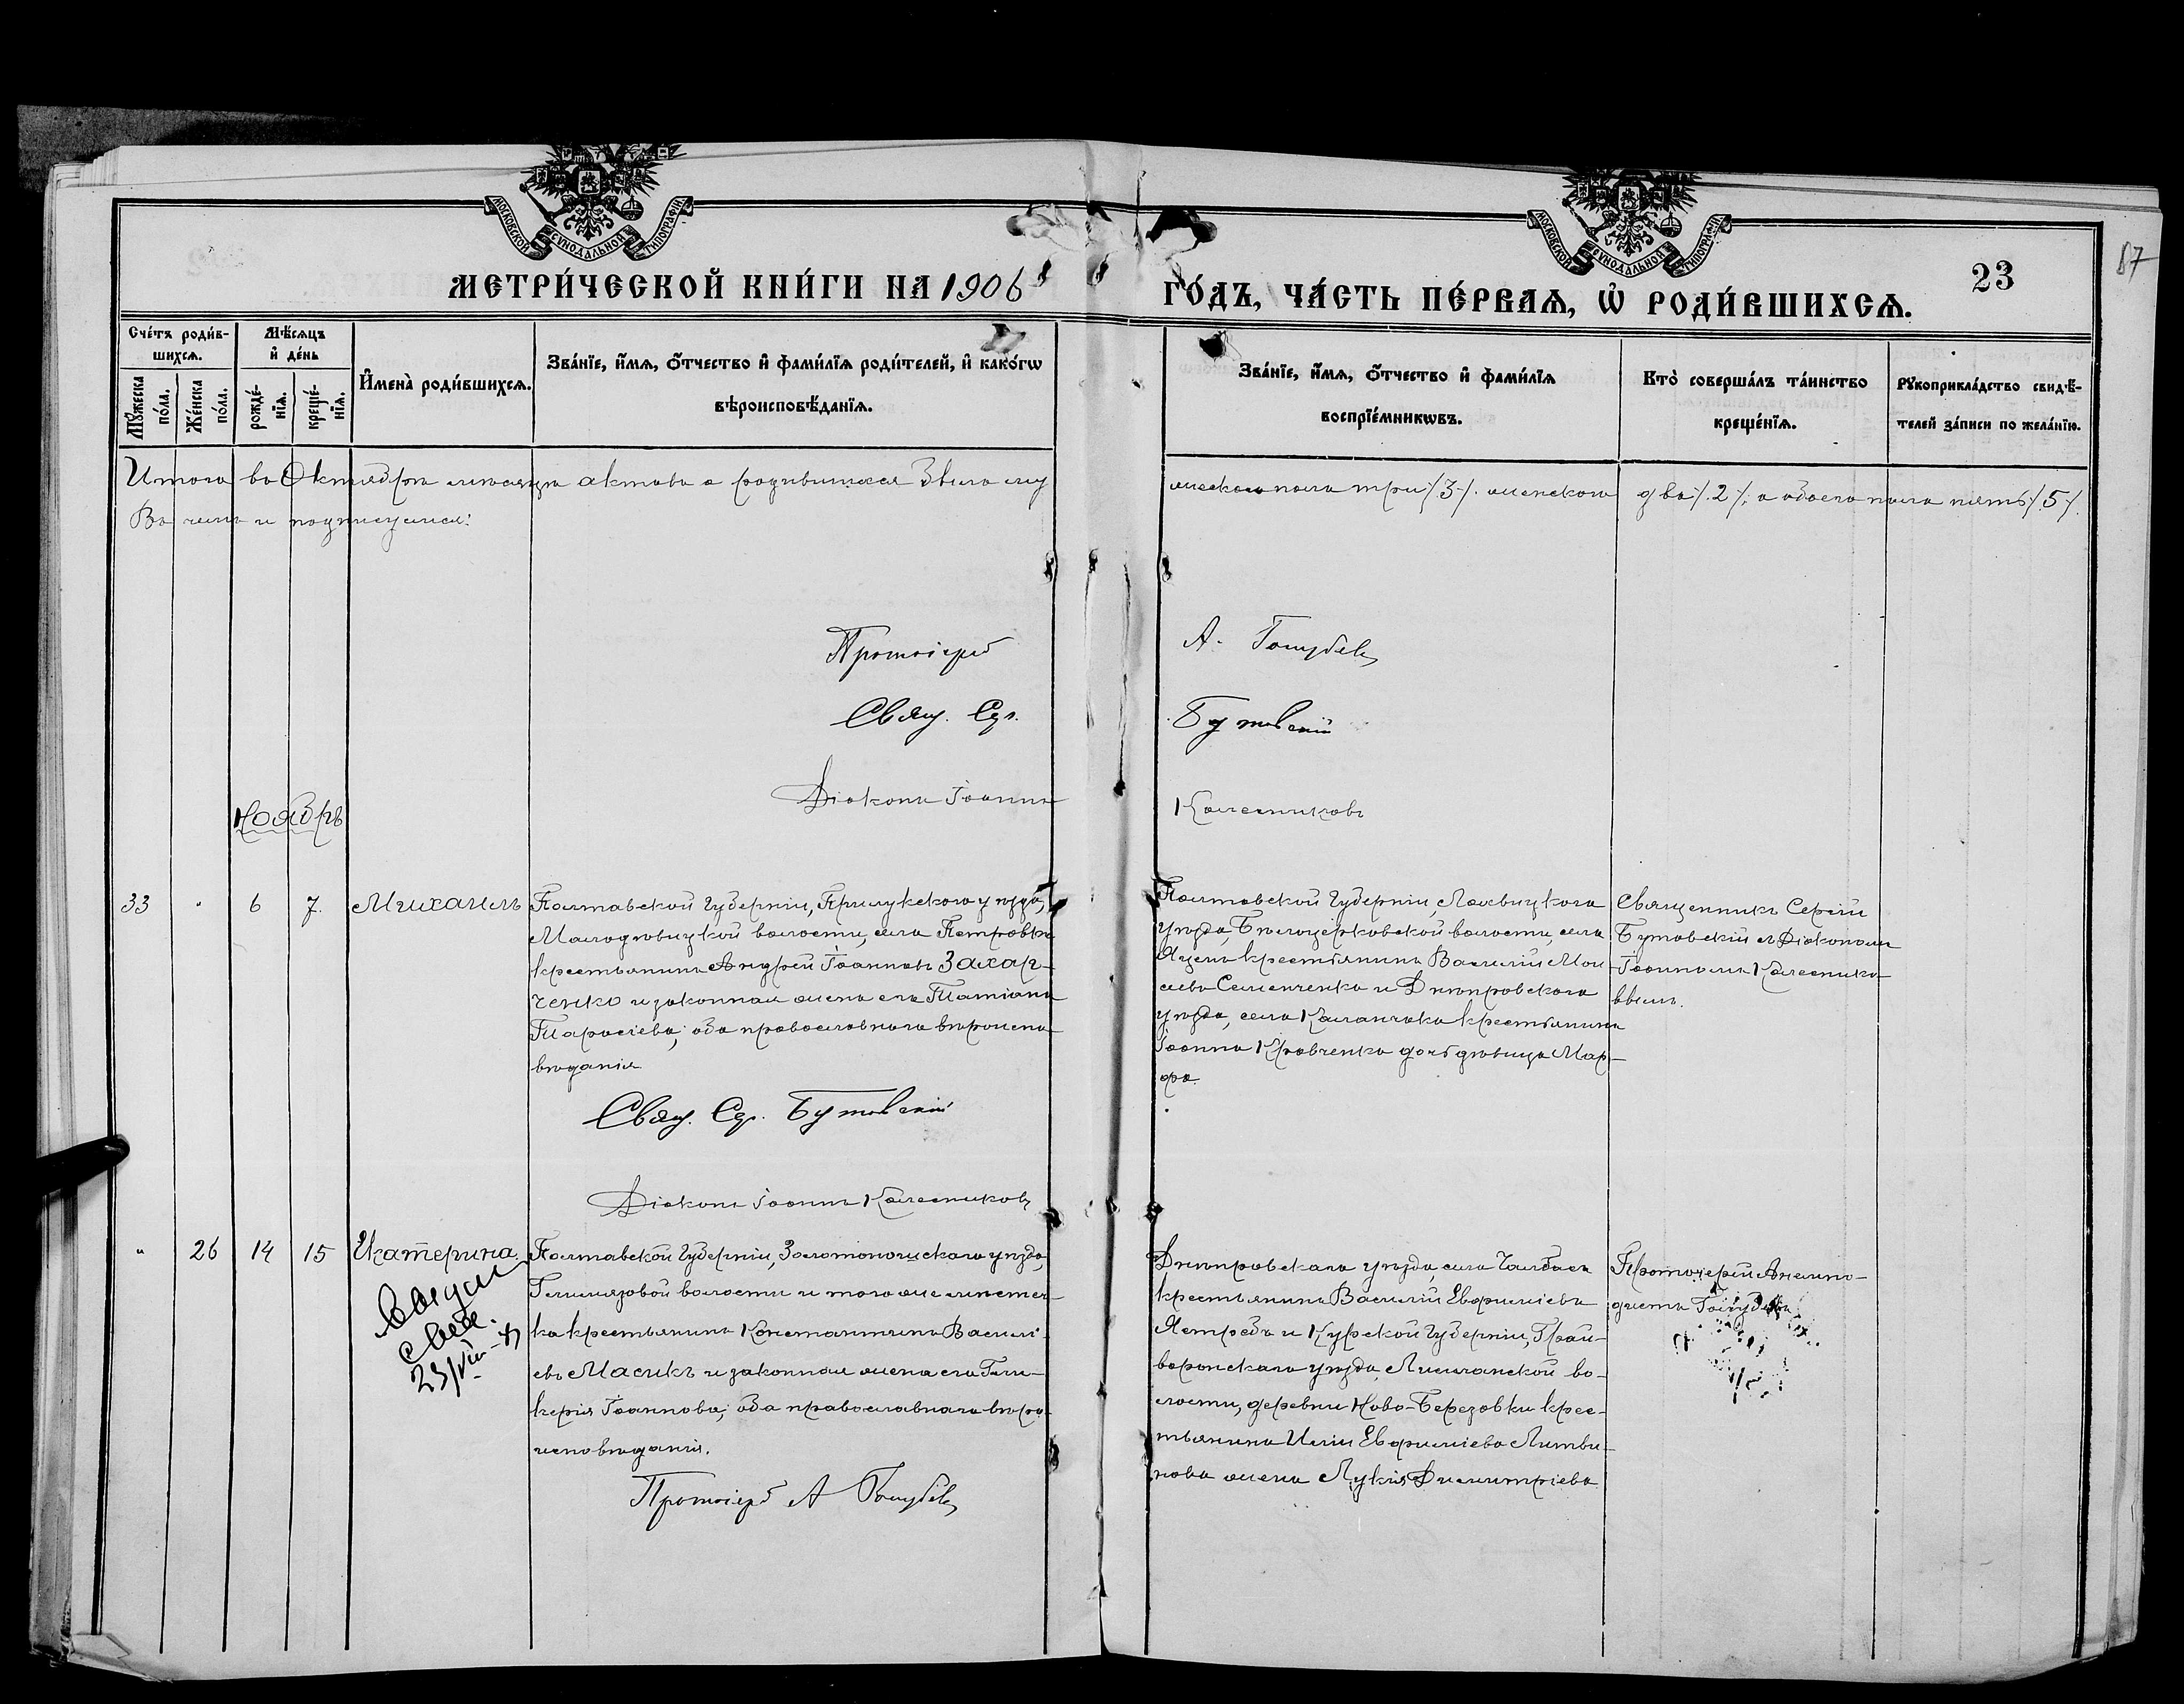 МОСКОВСКОЙ СѴНОДАЛЬНОЙ ТИПОГРАФІИ
МОСКОВСКОЙ СѴНОДАЛЬНОЙ ТИПОГРАФІИ
МЕТРИ́ЧЕСКОЙ КНИ́ГИ НА 1906
ГО́ДЪ, ЧА́СТЬ ПЕ́РВАѦ, Ѡ РОДИ́ВШИХСѦ.
23
87
Сче́тъ роди́в-
шихсѧ.
Мꙋ́жеска
по́ла.
Же́нска
по́ла.
Мѣ́сѧцъ
и де́нь
рожде́-
нїѧ.
креще́-
нїѧ.
Имена̀ роди́вшихсѧ.
Зва́нїе, и́мѧ, о́тчество и фами́лїѧ роди́телей, и како́гѡ
вѣроисповѣ́данїѧ.
Зва́нїе, и́мѧ, о́тчество и фами́лїѧ
воспрїе́мникѡвъ.
Кто̀ соверша́лъ та́инство
креще́нїѧ.
Рꙋкоприкла́дство свидѣ́-
телей за́писи по жела́нїю.
Итого въ Октябрѣ мѣсяцѣ актовъ о родившихся было му
жескаго пола три /3/. женскаго два /.2/; а обоего пола пять /.5/.
Въ чемъ и подписуемся:
Протоіерей А. Голубевъ
Свящ. Сер. Бутовскій
Діаконъ Іоаннъ Колесниковъ
Ноябрь
33 " 6 7. Михаилъ
Полтавской Губерніи, Прилукскаго уѣзда,
Малодѣвицкой волости, села Петровки
крестьянинъ Андрей Іоанновъ Захар-
ченко и законная жена его Татіана
Тарасіева; оба православнаго вѣроиспо-
вѣданія
Свящ. Сер. Бутовскій
Діаконъ Іоаннъ Колесниковъ
Полтавской Губерніи, Лохвицкаго
уѣзда, Бѣлоцерковской волости, села
Яценъ крестьянинъ Василій Мои
сеевъ Семенченко и Днѣпровскаго
уѣзда, села Каланчака крестьянина
Іоанна Кравченка дочь дѣвица Мар-
фа.
Священникъ Сергій
Бутовскій съ Діакономъ
Іоанномъ Колеснико-
вымъ.
" 26 14 15 Екатерина.
23/VIII-
Полтавской Губерніи, Золотоношскаго уѣзда,
Гельмязовой волости и того же мѣстеч-
ка крестьянинъ Константинъ Василі-
евъ Масикъ и законная жена его Гли-
керія Іоаннова; оба православнаго вѣро-
исповѣданія.
Протоіерей А Голубевъ
Днѣпровскаго уѣзда, села Чалбасъ
крестьянинъ Василій Евфиміевъ
Ястребъ и Курской Губерніи, Грай-
воронскаго уѣзда, Лисичанской во-
лости, деревни Ново-Березовки крес-
тьянина Иліи Евфиміева Литви-
нова жена Лукія Димитріева
Протоіерей Анемпо-
дистъ Голубевъ